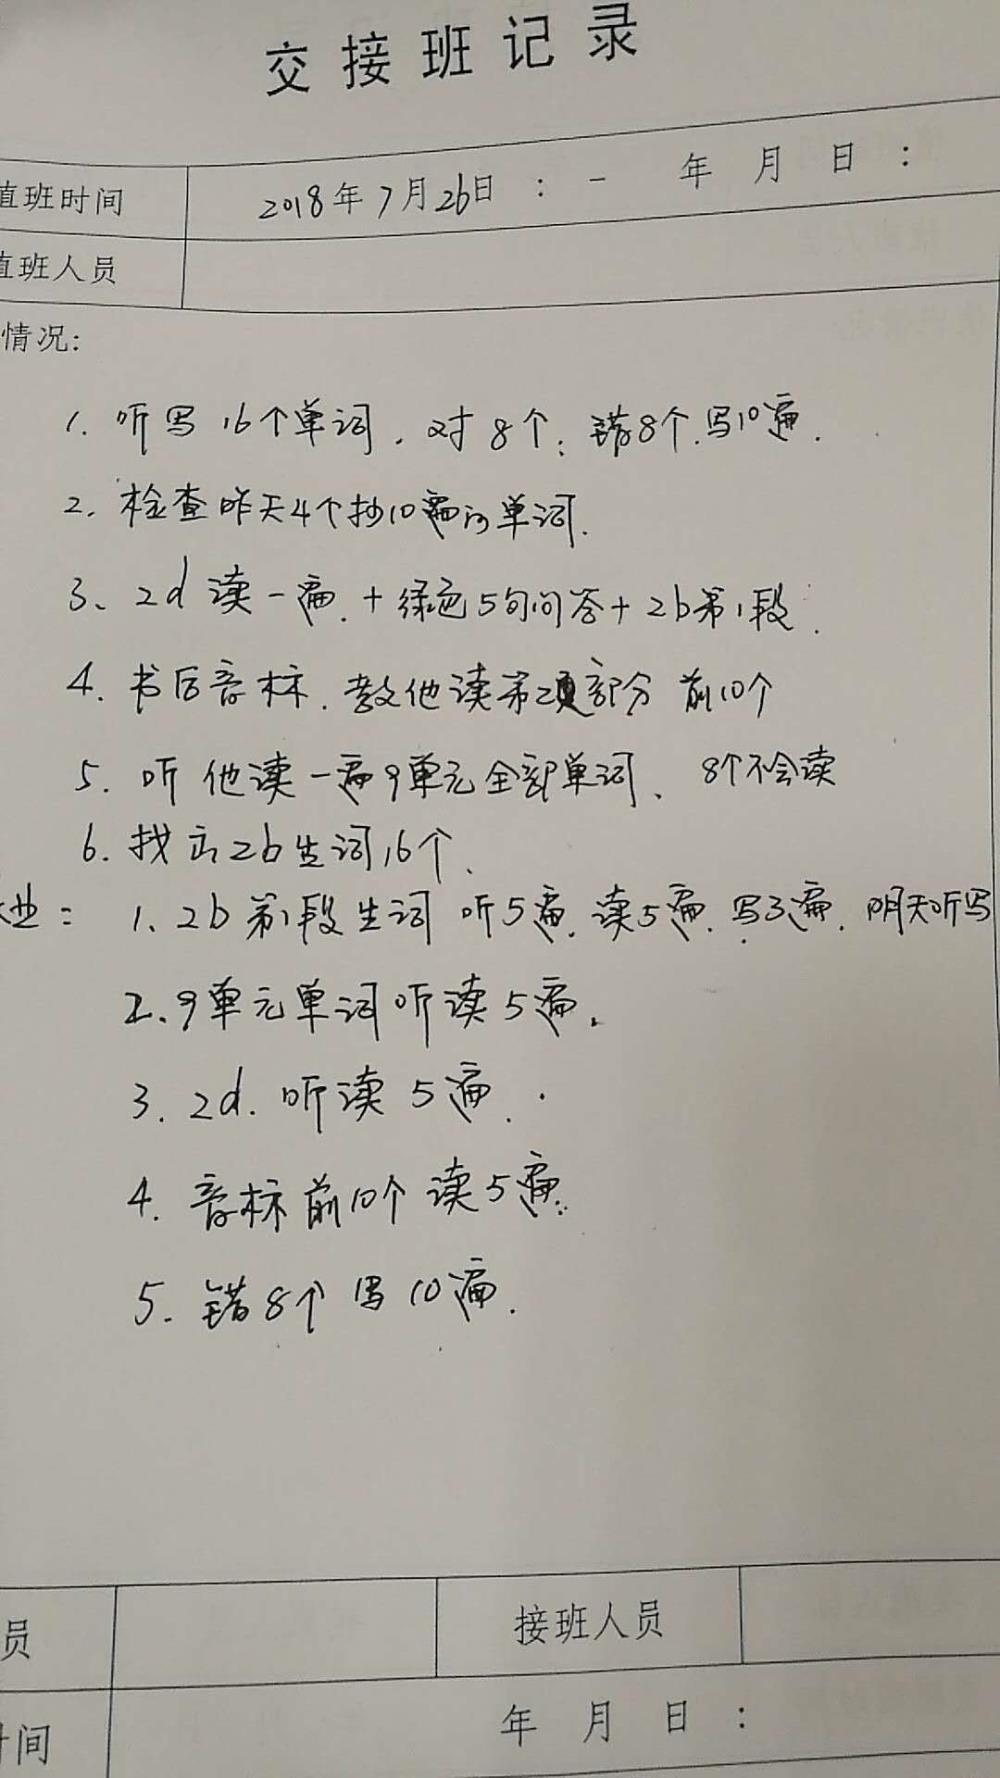 交接班记录
值班时间 2018年7月26日 : - 年 月 日 :
值班人员
情况:
1. 听写16个单词,对8个,错8个,写10遍.
2. 检查昨天4个抄10遍的单词.
3、2d 读一遍.+绿色5句问答+2b第1段.
4. 书后音标.教他读第2部分 前10个
5. 听他读一遍9单元全部单词、8个不会读
6. 找出2b生词16个.
业: 1、2b第1段生词 听5遍.读5遍.写3遍.明天听写
2、9单元单词听读5遍.
3. 2d. 听读5遍.
4. 音标前10个读5遍.
5. 错8个写10遍.
员 接班人员
时间 年 月 日 :